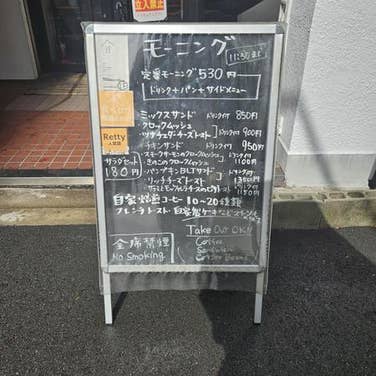 立入禁止
モーニング
11:30まで
定番モーニング530円
ドリンク+パン+サイドメニュー
ミックスサンド ドリンク付 850円
クロックムッシュ
ツナチェダーチーズトースト ドリンク付 900円
チキンサンド ドリンク付 950円
スモークサーモンのクロックムッシュ ドリンク付
きのこのクロックムッシュ ドリンク付 1100円
パンプキンBLTサンド ドリンク付
リッチチーズトースト
ドリンク付 1150円
Retty
人気店
サラダセット
180円
自家焙煎コーヒー 10〜20種類
フレンチトースト 自家製ケーキなど
全席禁煙
No Smoking
Take Out OK!!
Coffee
Sandwich